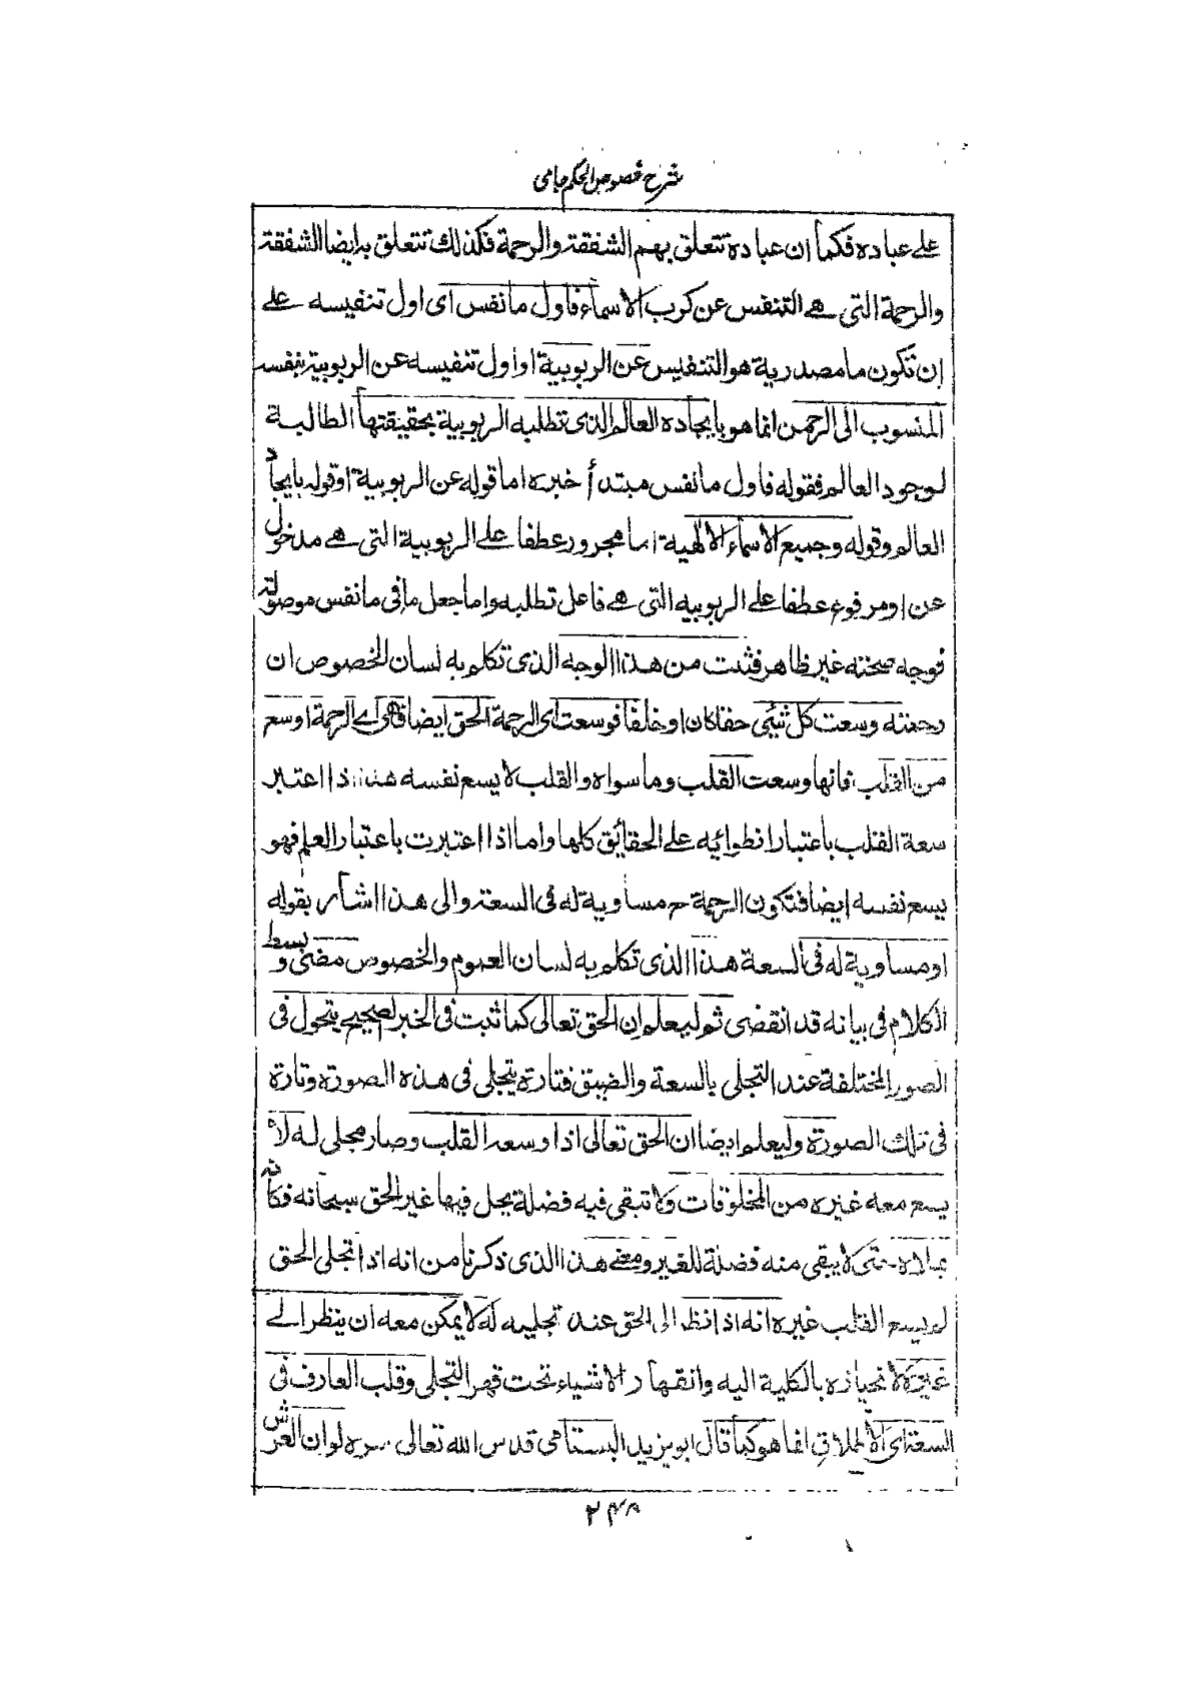 شرح فصوص الحكم جامی
على عباده فكما ان عباده تتعلق بهم الشفقة والرحمة فكذلك تتعلق به ايضا الشفقة
والرحمة التى هى التنفس عن كرب الاسماء فاول ما نفس اى اول تنفيسه على
ان تكون ما مصدرية هو التنفيس عن الربوبية او اول تنفيسه عن الربوبية بنفسه
المنسوب الى الرحمن انما هو بايجاده العالم الذى تطلبه الربوبية بحقيقتها الطالبة
لوجود العالم فقوله فاول ما نفس مبتدأ خبره اما قوله عن الربوبية او قوله بايجاد
العالم وقوله وجميع الاسماء الالهية اما مجرور عطفا على الربوبية التى هى مدخول
عن او مرفوع عطفا على الربوبية التى هى فاعل تطلبه واما جعل ما فى ما نفس موصولة
فوجه صحته غير ظاهر فثبت من هذا الوجه الذى تكلم به لسان الخصوص ان
رحمته وسعت كل شئ حقا كان او خلقا فوسعت اى الرحمة الحق ايضا فهى اى الرحمة اوسع
من القلب فانها وسعت القلب وما سواه والقلب لا يسع نفسه هذا اذا اعتبر
سعة القلب باعتبار انطوائه على الحقائق كلها واما اذا اعتبرت باعتبار العلم فهو
يسع نفسه ايضا فتكون الرحمة ح مساوية له فى السعة والى هذا اشار بقوله
او مساوية له فى السعة هذا الذى تكلم به لسان العموم والخصوص مضى وبسط
الكلام فى بيانه قد انقضى ثم ليعلم ان الحق تعالى كما ثبت فى الخبر الصحيح يتحول فى
الصور المختلفة عند التجلى بالسعة والضيق فتارة يتجلى فى هذه الصورة وتارة
فى تلك الصورة وليعلم ايضا ان الحق تعالى اذا وسعه القلب وصار مجلى له لا
يسع معه غيره من المخلوقات ولا تبقى فيه فضلة يحل فيها غير الحق سبحانه فكانه
يملاه حتى لا يبقى منه فضلة للغير ومعنى هذا الذى ذكرنا من انه اذا تجلى الحق
لم يسع القلب غيره انه اذا نظر الى الحق عند تجليه له لا يمكن معه ان ينظر الى
غيره لانحيازه بالكلية اليه وانقهار الاشياء تحت قهر التجلى وقلب العارف فى
السعة اى الاطلاق انما هو كما قال ابو يزيد البسطامى قدس الله تعالى سره لو ان العرش
۲۴۸